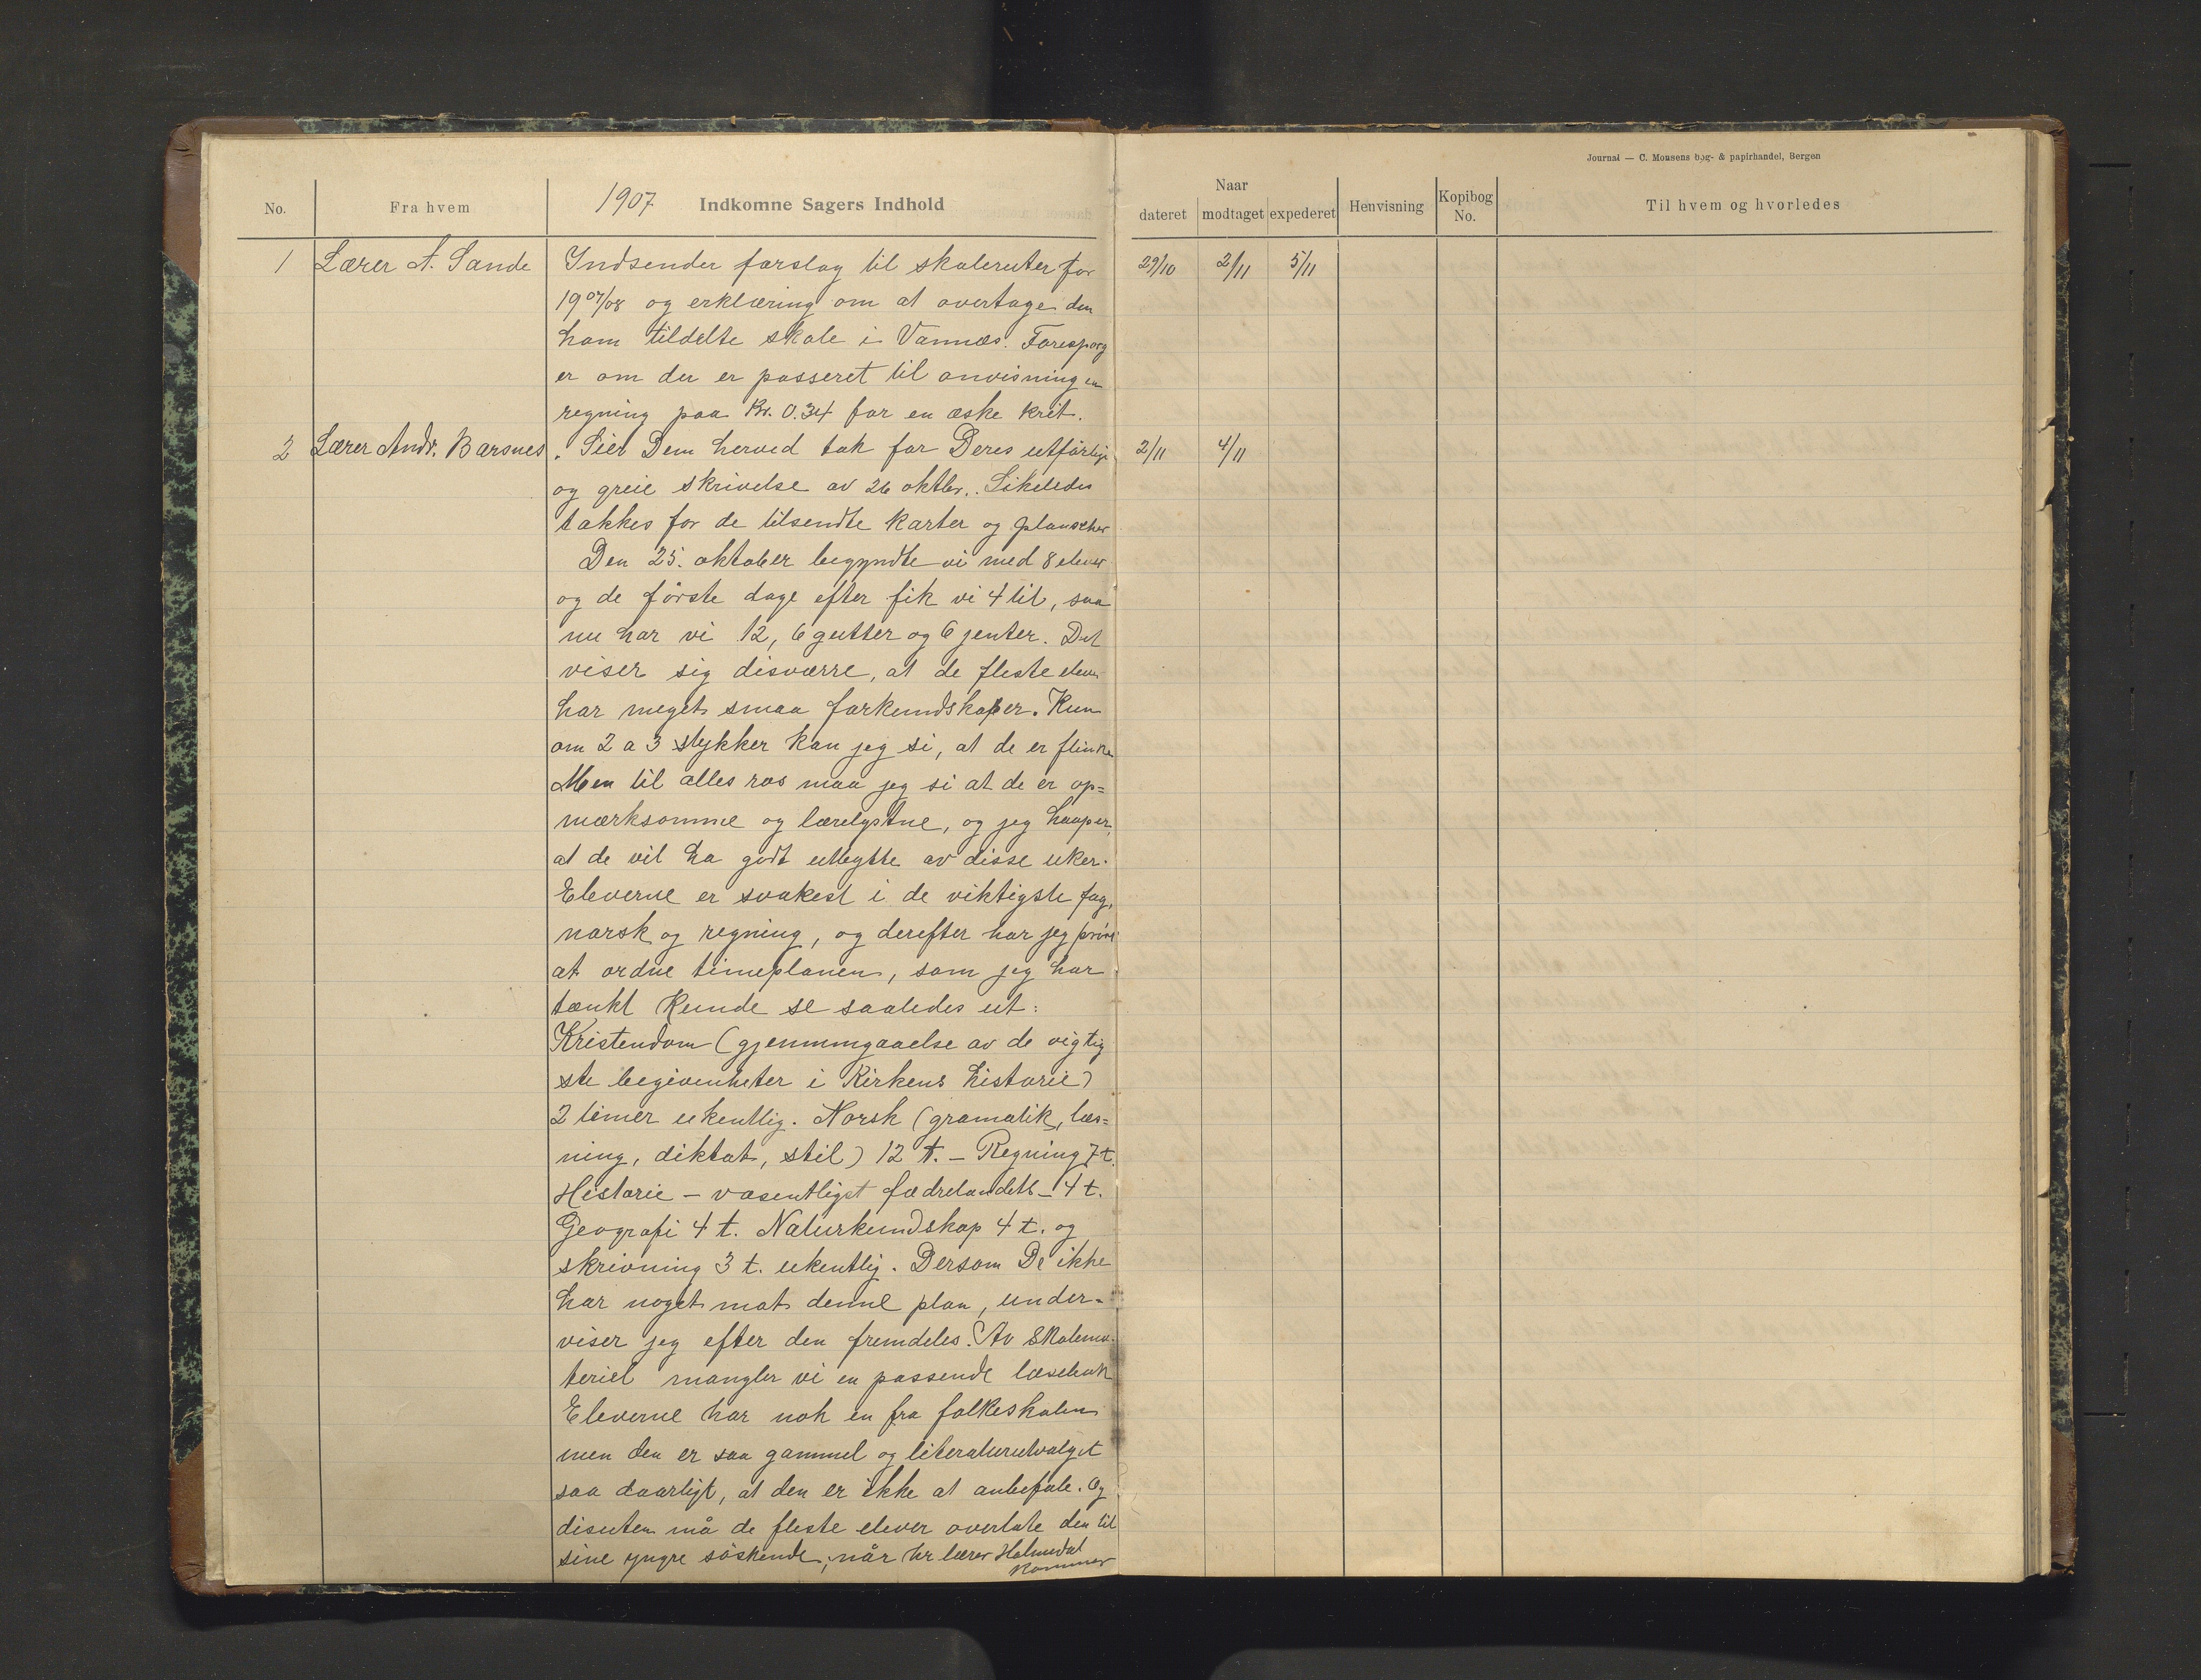 Journal — C. Monsens bog- & papirhandel, Bergen
No. Fra hvem 1907 Indkomne Sagers Indhold
Naar
dateret modtaget expederet Henvisning Kopibog No. Til hvem og hvorledes
1 Lærer A. Sande Indsender forslag til skoleruter for 29/10 2/11 5/11
1907/08 og erklæring om at overtage den
ham tildelte skole i Vannæs. Forespørg
er om der er passeret til anvisning en
regning paa Kr. 0.34 for en æske krit.
2 Lærer Andr. Barsnes. Sier Dem herved tak for Deres utførlige 2/11 4/11
og greie skrivelse av 26 oktbr. Likeledes
takkes for de tilsendte karter og plansher
Den 25. oktober begyndte vi med 8 elever
og de første dage efter fik vi 4 til, saa
nu har vi 12, 6 gutter og 6 jenter. Det
viser sig disværre, at de fleste elever
har meget smaa forkundskaper. Kun
om 2 a 3 stykker kan jeg si, at de er flinke
Men til alles ros maa jeg si at de er op=
mærksomme og lærelystne, og jeg haaper,
at de vil ha godt utbytte av disse uker.
Eleverne er svakest i de viktigste fag,
norsk og regning, og derefter har jeg prøvd
at ordne timeplanen, som jeg har
tænkt kunde se saaledes ut:
Kristendom (gjennmgaaelse av de vigtig
ste begivenheter i Kirkens historie)
2 timer ukentlig. Norsk (gramatik, læs=
ning, diktat, stil) 12 t. — Regning 7 t.
Historie — væsentligst fædrelandets — 4 t.
Geografi 4 t. Naturkundskap 4 t. og
skrivning 3 t. ukentlig. Dersom De ikke
har noget mot denne plan, under-
viser jeg efter den fremdeles. Av skolema-
teriel mangler vi en passende læsebok
Eleverne har nok en fra folkeskolen
men den er saa gammel og literaturutvalget
saa daarligt, at den er ikke at anbefale. Og
disuten må de fleste elever overlate den til
sine yngre søskende, når hr lærer Holmedal
kommer